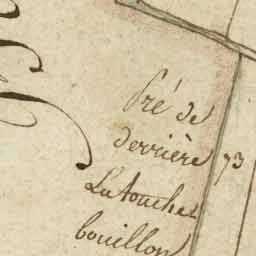 Pré de
derrière
Latouche
bouillon
73